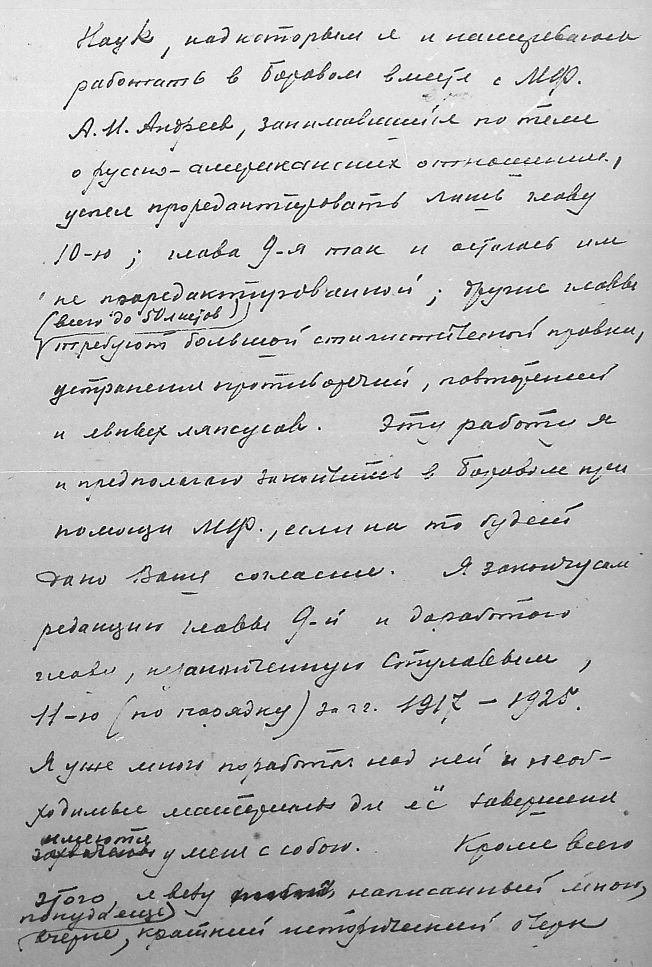 Наук, над которым я и намереваюсь
работать в Боровом вместе с МФ.
А.И. Андреев, занимавшийся по теме
о русско-американских отношениях,
успел проредактировать лишь главу
10-ю; глава 9-я так и осталась им
не проредактированной; другие главы
(всего до 50 листов)
требуют большой стилистической правки,
устранения противоречий, повторений
и явных ляпсусов. Эту работу я
и предполагаю закончить в Боровом при
помощи МФ., если на то будет
дано Ваше согласие. Я закончу сам
редакцию главы 9-й и доработаю
главу, незаконченную Стулавым,
11-ю (по порядку) за гг. 1917 – 1925.
Я уже много поработал над ней и необ-
ходимые материалы для её завершения
имеются
у меня с собою. Кроме всего
этого, я везу написанный мною,
покуда ещё
очерне, краткий исторический очерк